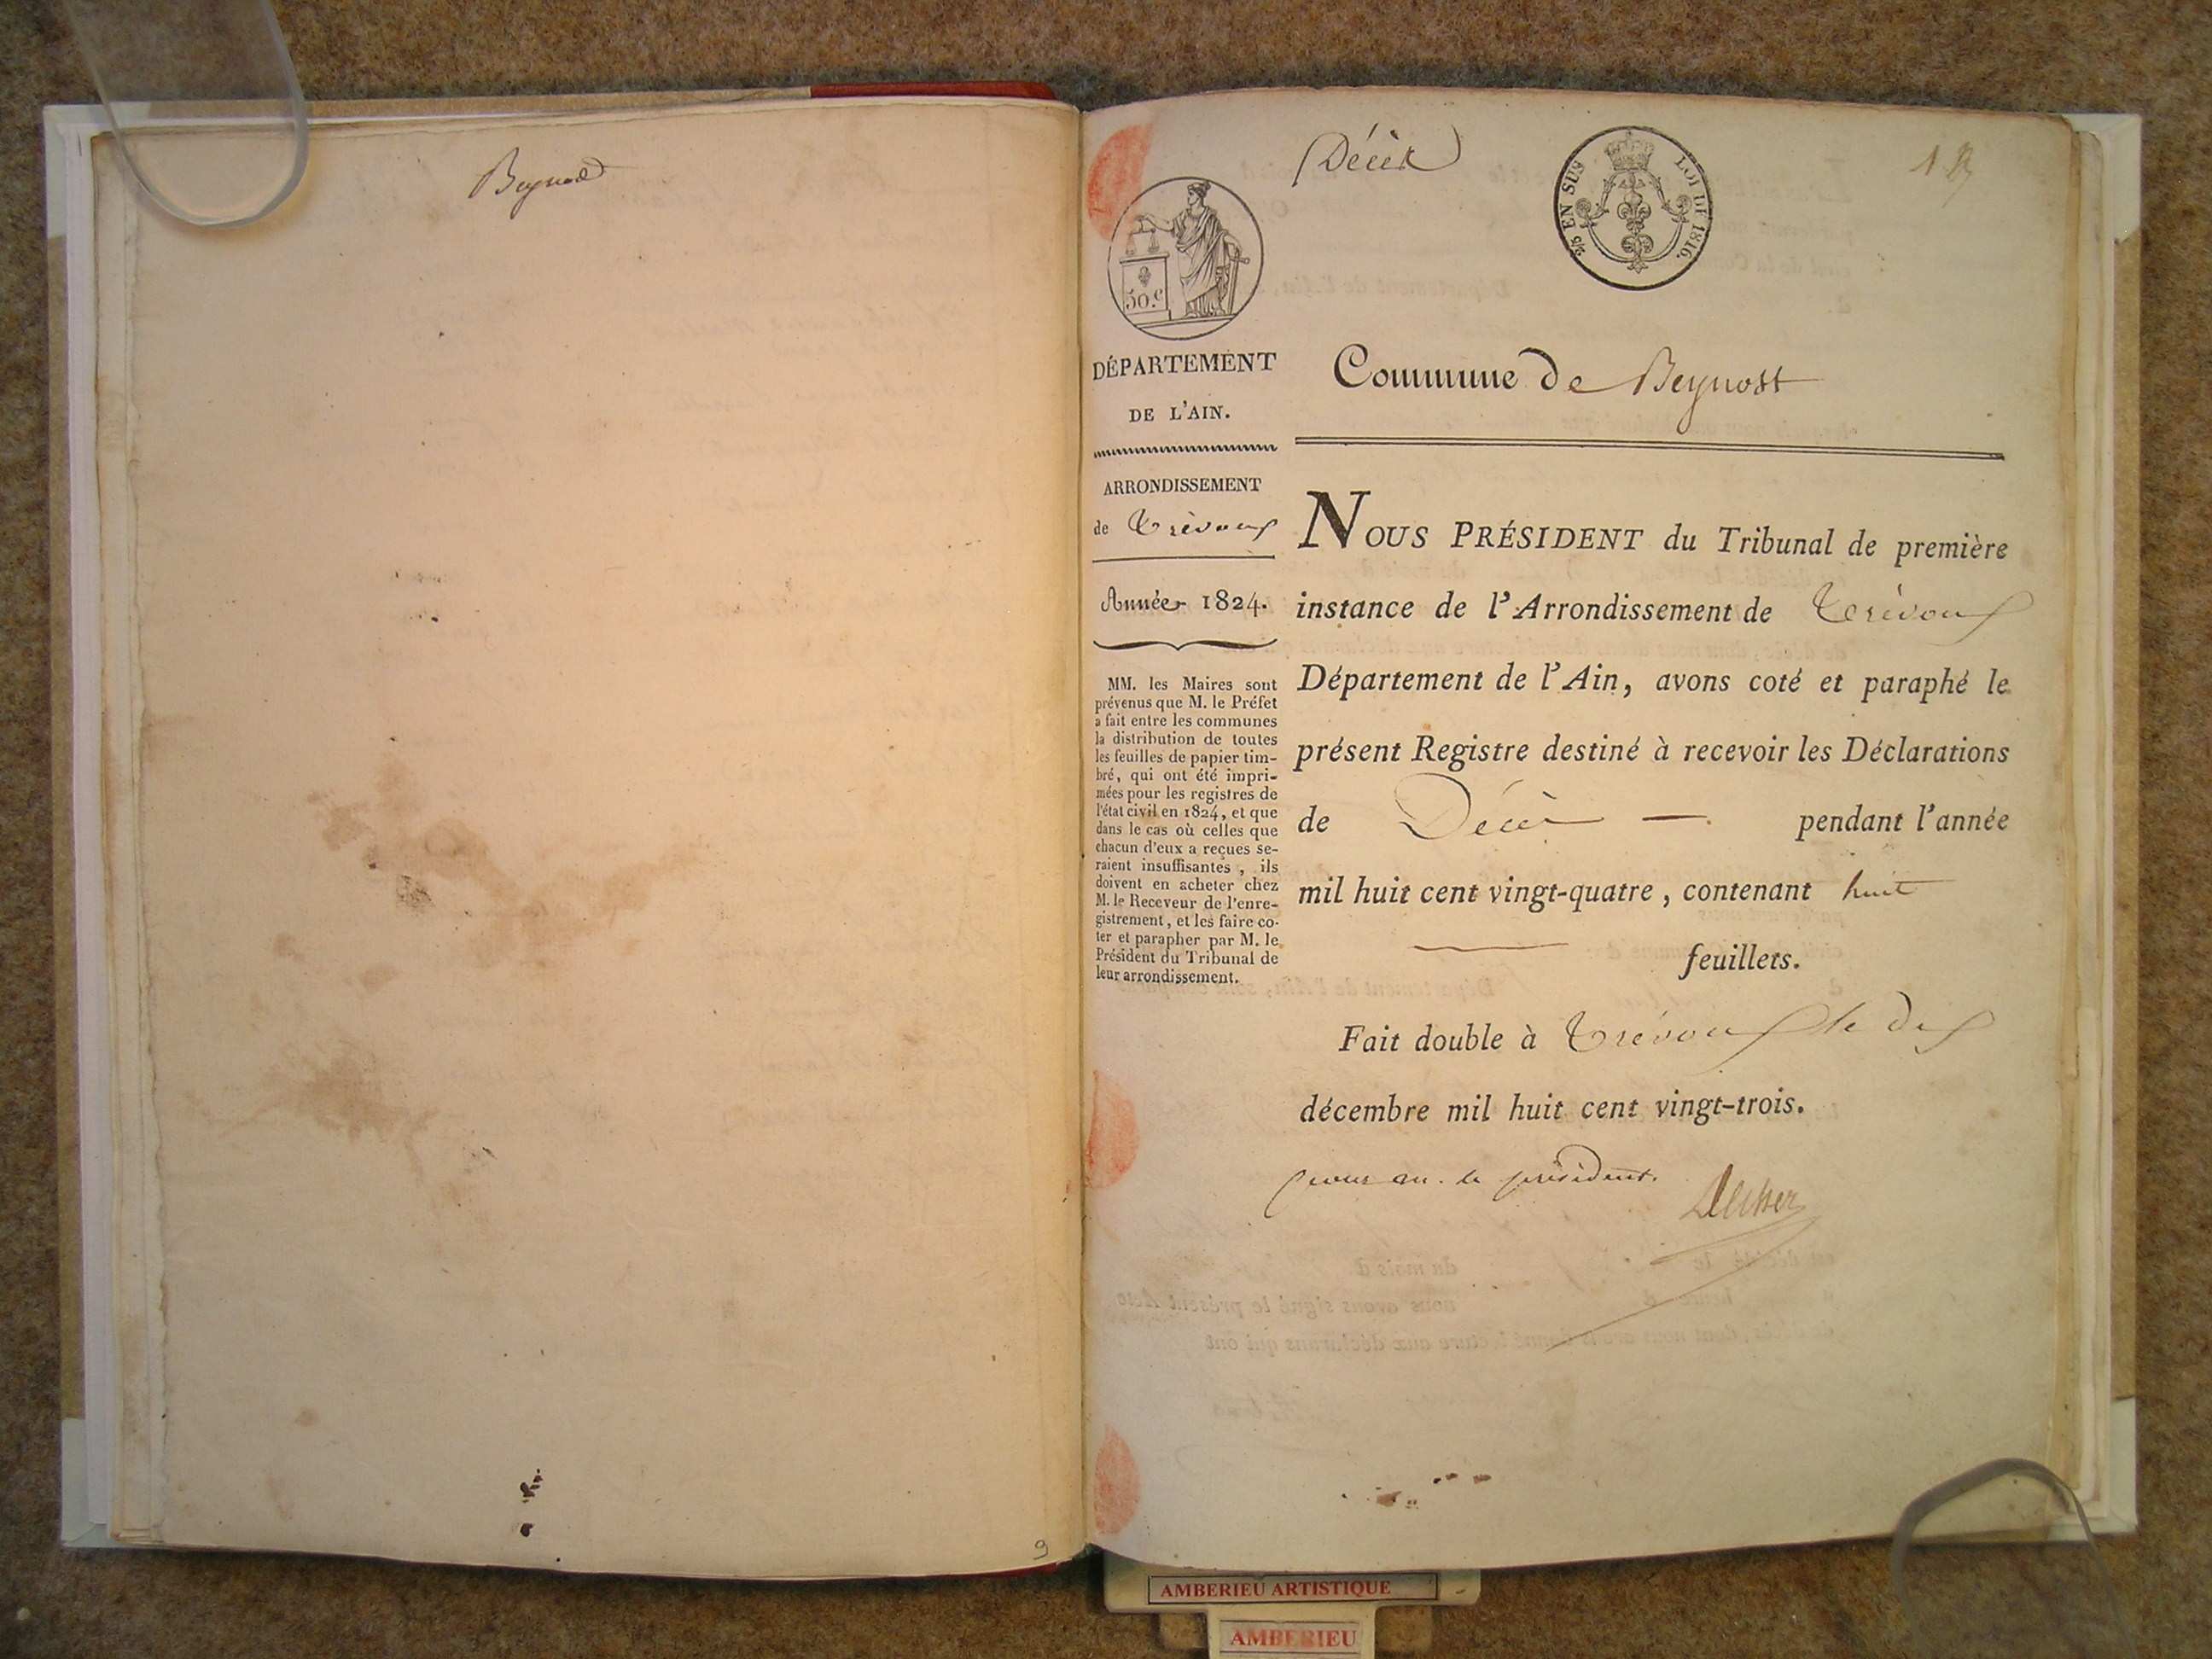 Beynost
Décès
2/5 EN SUS
LOI DE 1816.
50.c
DÉPARTEMENT
DE L'AIN.
ARRONDISSEMENT
de Trévoux
Année 1824.
MM. les Maires sont
prévenus que M. le Préfet
a fait entre les communes
la distribution de toutes
les feuilles de papier tim-
bré, qui ont été impri-
mées pour les registres de
l'état civil en 1824, et que
dans le cas où celles que
chacun d'eux a reçues se-
raient insuffisantes, ils
doivent en acheter chez
M. le Receveur de l'enre-
gistrement, et les faire co-
ter et parapher par M. le
Président du Tribunal de
leur arrondissement.
Commune de Beynost
NOUS PRÉSIDENT du Tribunal de première
instance de l'Arrondissement de Trévoux
Département de l'Ain, avons coté et paraphé le
présent Registre destiné à recevoir les Déclarations
de Décès — pendant l'année
mil huit cent vingt-quatre, contenant huit
— feuillets.
Fait double à Trévoux le dix
décembre mil huit cent vingt-trois.
pour m. le président.
9
AMBERIEU ARTISTIQUE
AMBERIEU